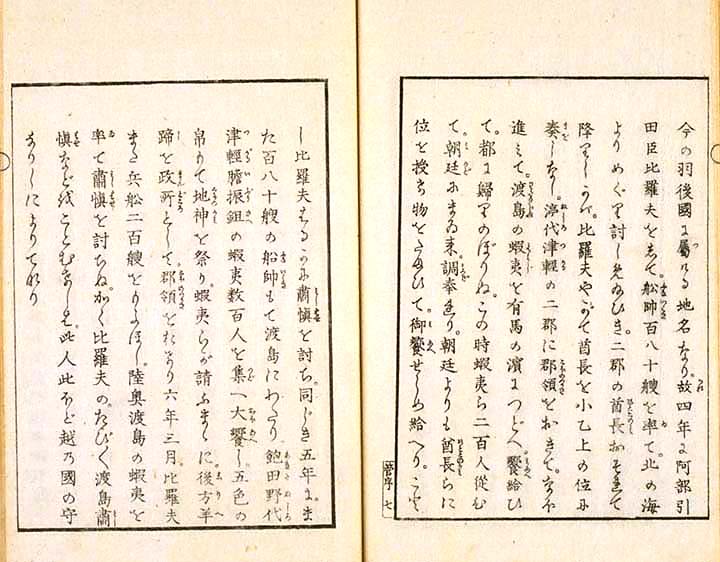 今の羽後國に屬する地名なり。故四年に阿部引
田臣比羅夫をして。船師百八十艘を率て。北の海
よりめぐり討しめたまひき。二郡の酋長おそれて
降りしかば。比羅夫やがて酋長を小乙上の位に
奏しなし。渟代津輕の二郡に郡領をおきて。なほ
進みて。渡島の蝦夷を有馬の濱につどへ饗給ひ
て。都に歸りのぼりぬ。この時蝦夷ら二百人從ひ
て。朝廷にまゐ來。調奉り。朝廷よりも酋長らに
位を授け物をたまひて。御饗せしめ給へり。
菅序 七
し比羅夫はるかに肅愼を討ち。同じき五年に。ま
た百八十艘の船師もて渡島にわたり。飽田野代
津輕膽振鉏の蝦夷数百人を集へ大饗し。五色の
帛もて地神を祭り。蝦夷らが請ふまゝに。後方羊
蹄を政所として。郡領をたまへり六年三月。比羅夫
また兵船二百艘をよそほし。陸奥渡島の蝦夷を
率て肅愼を討ちぬ。かく比羅夫の。たびたび渡島肅
愼などをことむけしも。此人此ほど越の國の守
なりしによりてなり